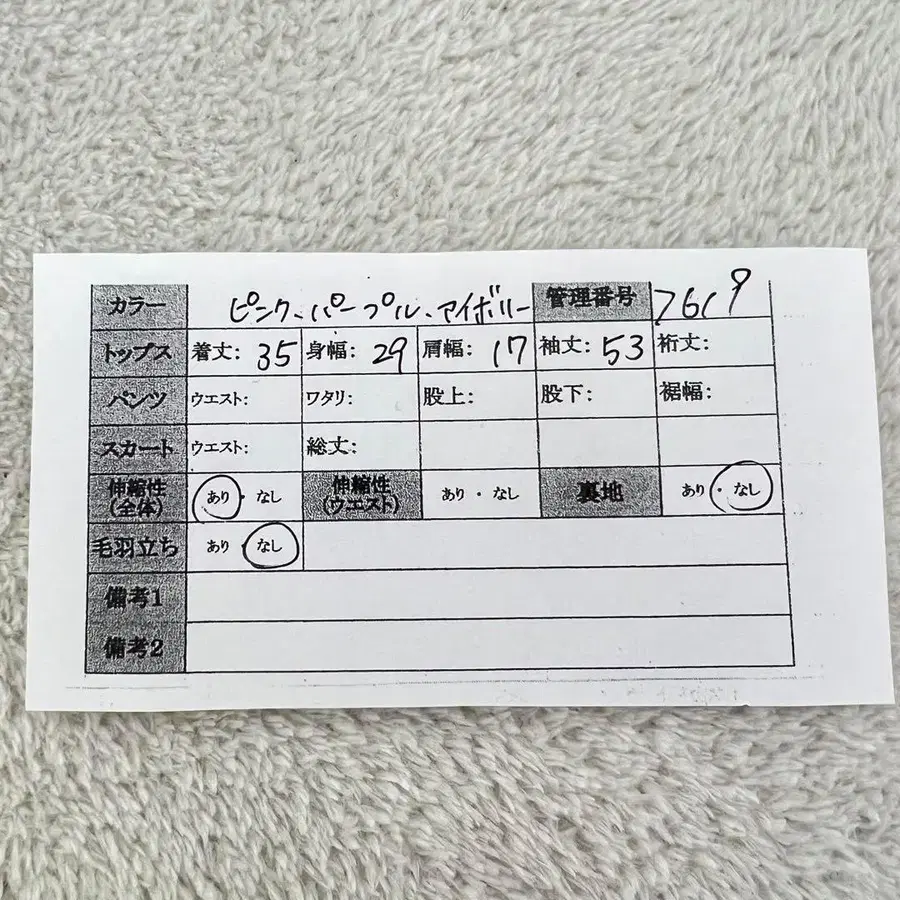 カラー ピンク、パープル、アイボリー 管理番号 7619
トップス 着丈: 35 身幅: 29 肩幅: 17 袖丈: 53 裄丈:
パンツ ウエスト: ワタリ: 股上: 股下: 裾幅:
スカート ウエスト: 総丈:
伸縮性(全体) あり・なし 伸縮性(ウエスト) あり・なし 裏地 あり・なし
毛羽立ち あり・なし
備考1
備考2